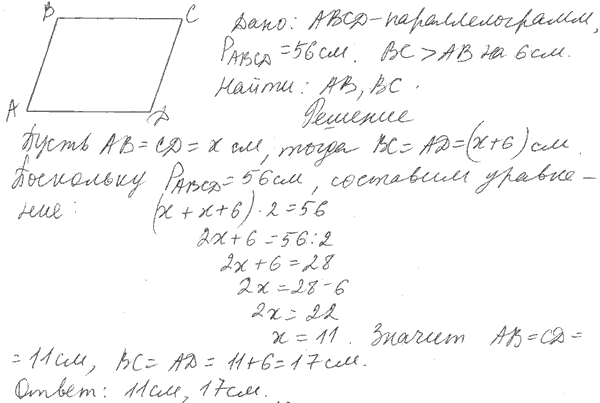 B C
A D
Дано: ABCD-параллелограмм,
P_ABCD = 56 см. BC > AB на 6 см.
Найти: AB, BC.
Решение
Пусть AB = CD = x см, тогда BC = AD = (x+6) см.
Поскольку P_ABCD = 56 см, составим уравне-
ние: (x + x + 6) · 2 = 56
2x + 6 = 56 : 2
2x + 6 = 28
2x = 28 - 6
2x = 22
x = 11. Значит AB = CD =
= 11 см, BC = AD = 11 + 6 = 17 см.
Ответ: 11 см, 17 см.